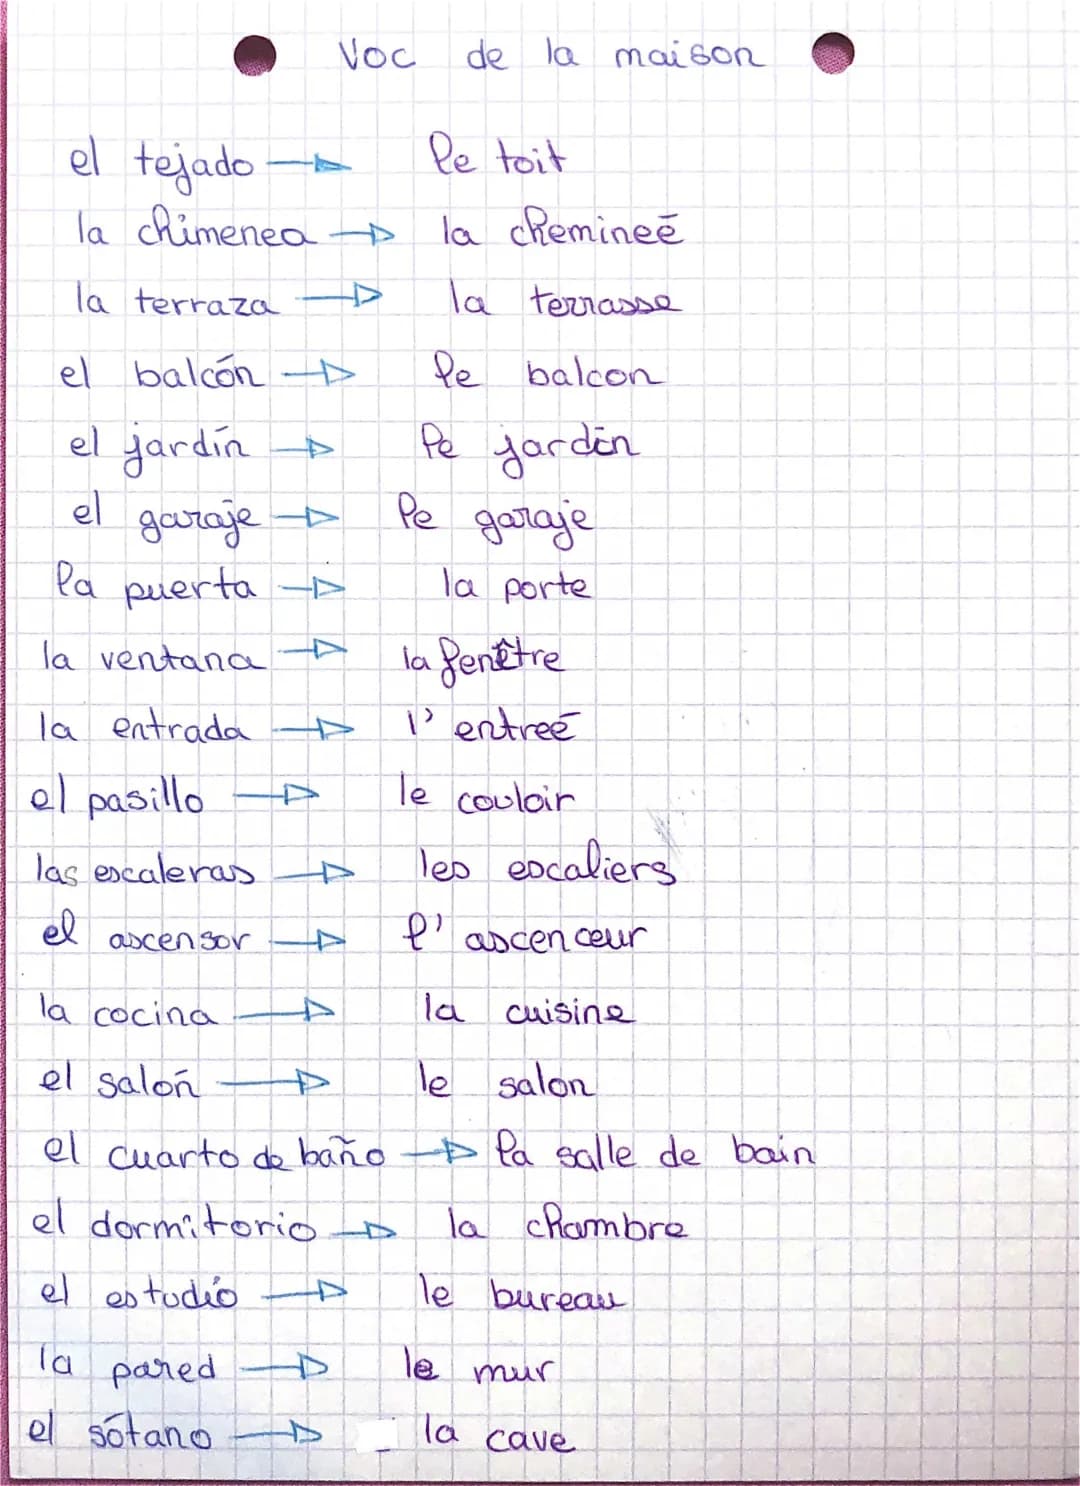 Voc de la maison
el tejado → le toit
la chimenea → la chemineé
la terraza → la terrasse
el balcón → le balcon
el jardín → le jardin
el garaje → le garaje
la puerta → la porte
la ventana → la fenêtre
la entrada → l'entreé
el pasillo → le couloir
las escaleras → les escaliers
el ascensor → l'ascenceur
la cocina → la cuisine
el salón → le salon
el cuarto de baño → la salle de bain
el dormitorio → la chambre
el estudio → le bureau
la pared → le mur
el sótano → la cave